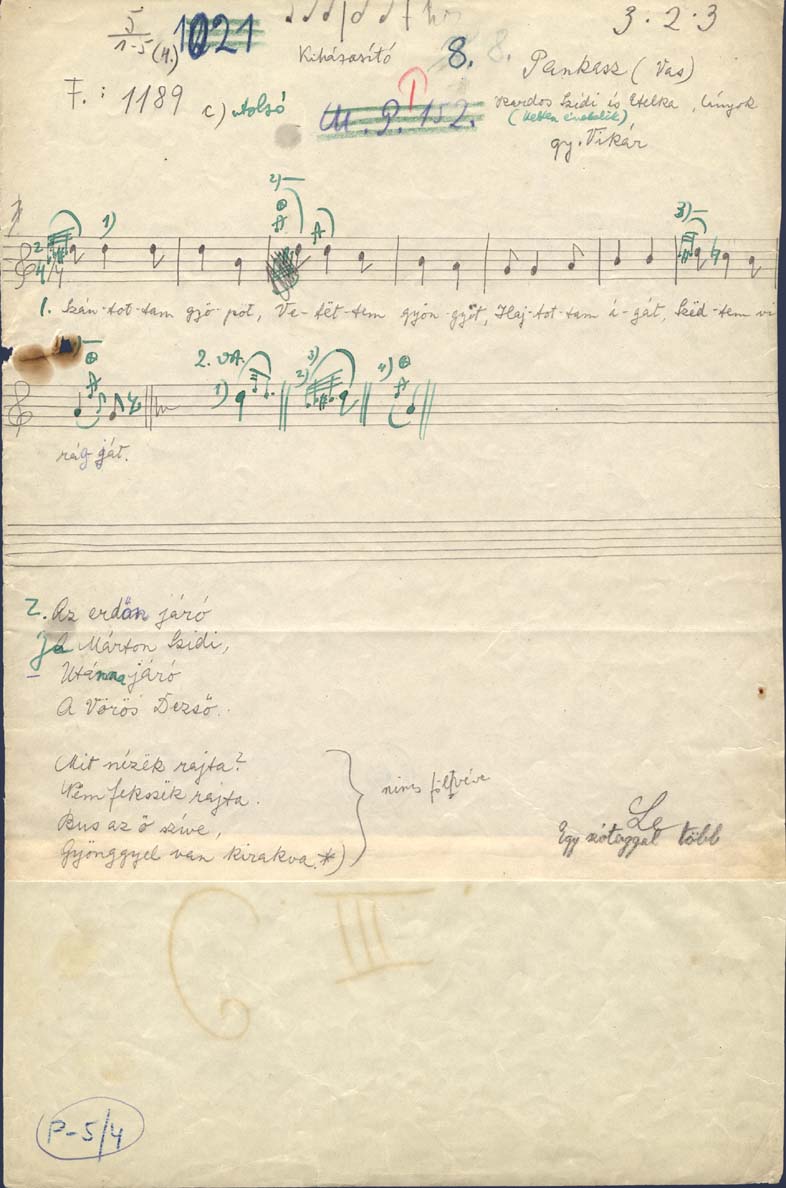 5
1-5 (4.) 1021
3.2.3
Kiházasító 8. 8.
Pankasz (Vas)
F.: 1189 c) utolsó
M. P. 152.
Kardos Szidi és Etelka, lányok
(ketten éneklik)
gy. Vikár
1) 2) A A 3)
2/4
1. Szán-tot-tam gyö-pot, Ve-tët-tem gyön-gyöt, Haj-tot-tam á-gát, Szëd-tem vi
A 2. vsz. 1) 2) 3) 4) A
rág-gát.
2. Az erdőn járó
Ja Márton Szidi,
– Utánna járó
A Vörös Dezső.
Mit nézëk rajta?
Nëm fekszëk rajta.
Bus az ő szíve,
Gyönggyel van kirakva.*)
nincs fölvéve
Le
Egy szótaggal több
C III
P-5/4